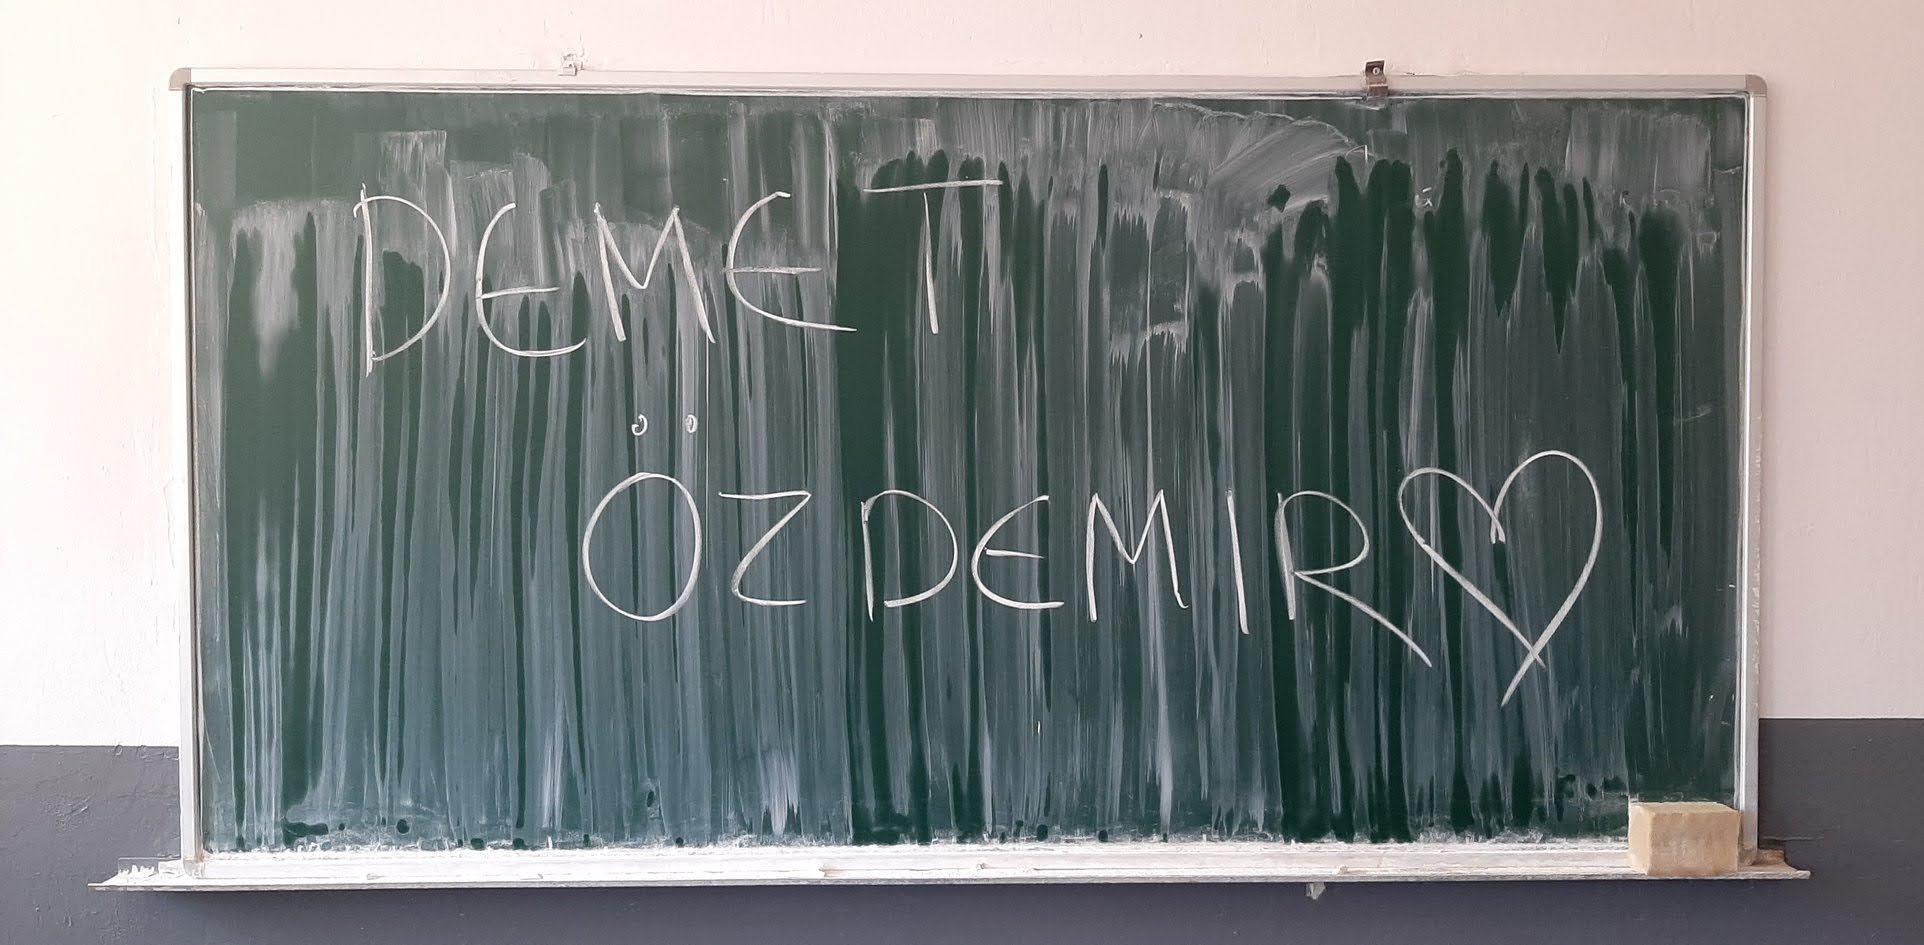 DEMET
ÖZDEMIR♡